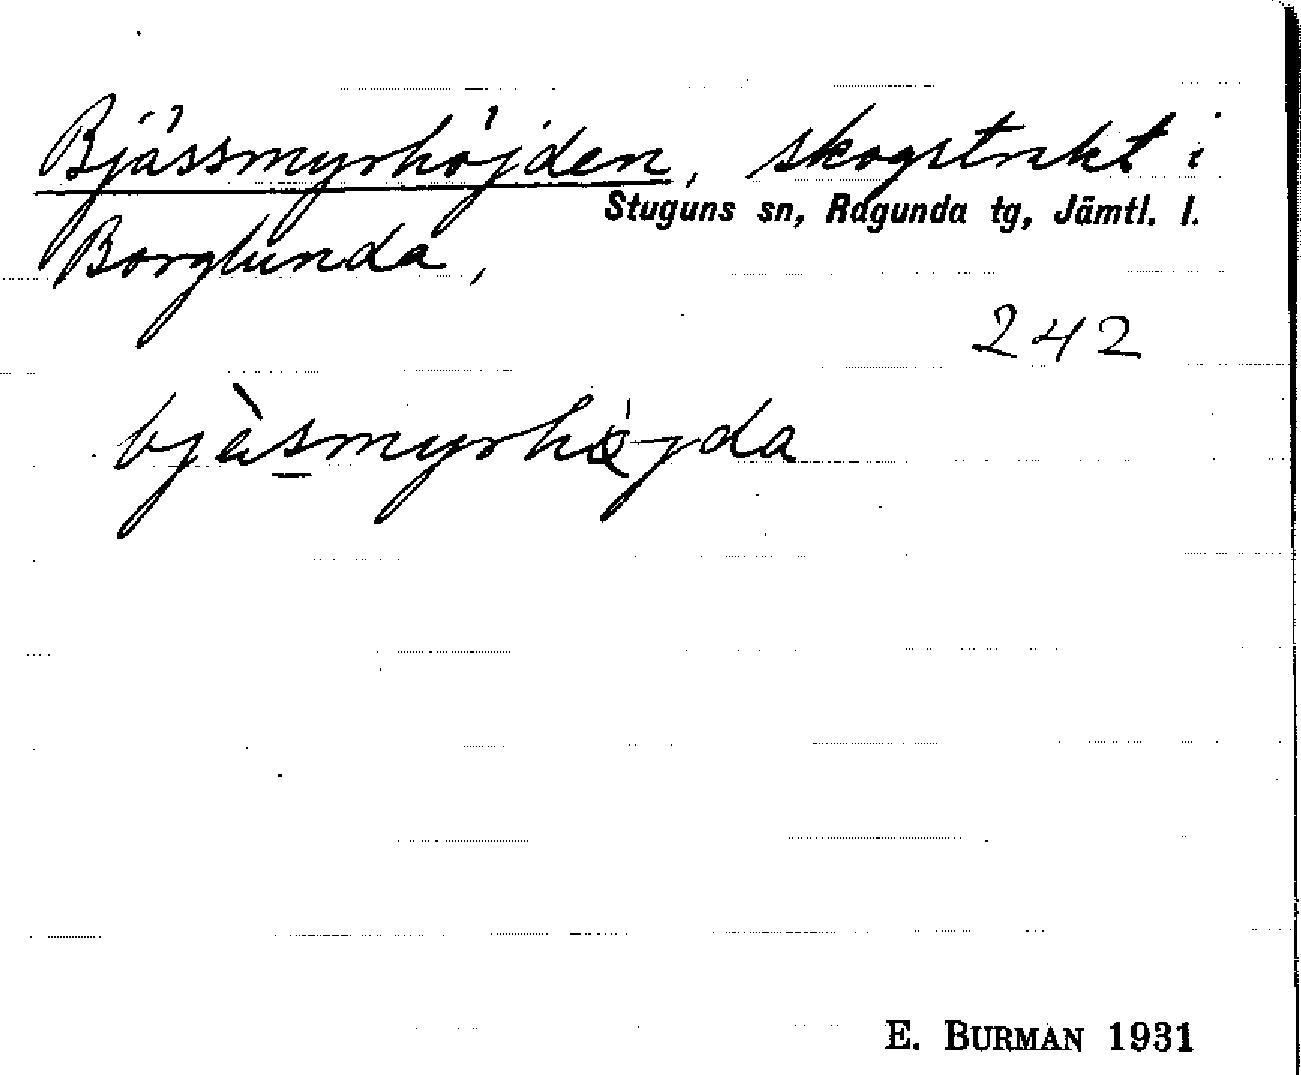 Bjässmyrhöjden, skogstrakt i
Stuguns sn, Ragunda tg, Jämtl. l.
Borglunda,
242
bjèsmyrhöjda
E. BURMAN 1931